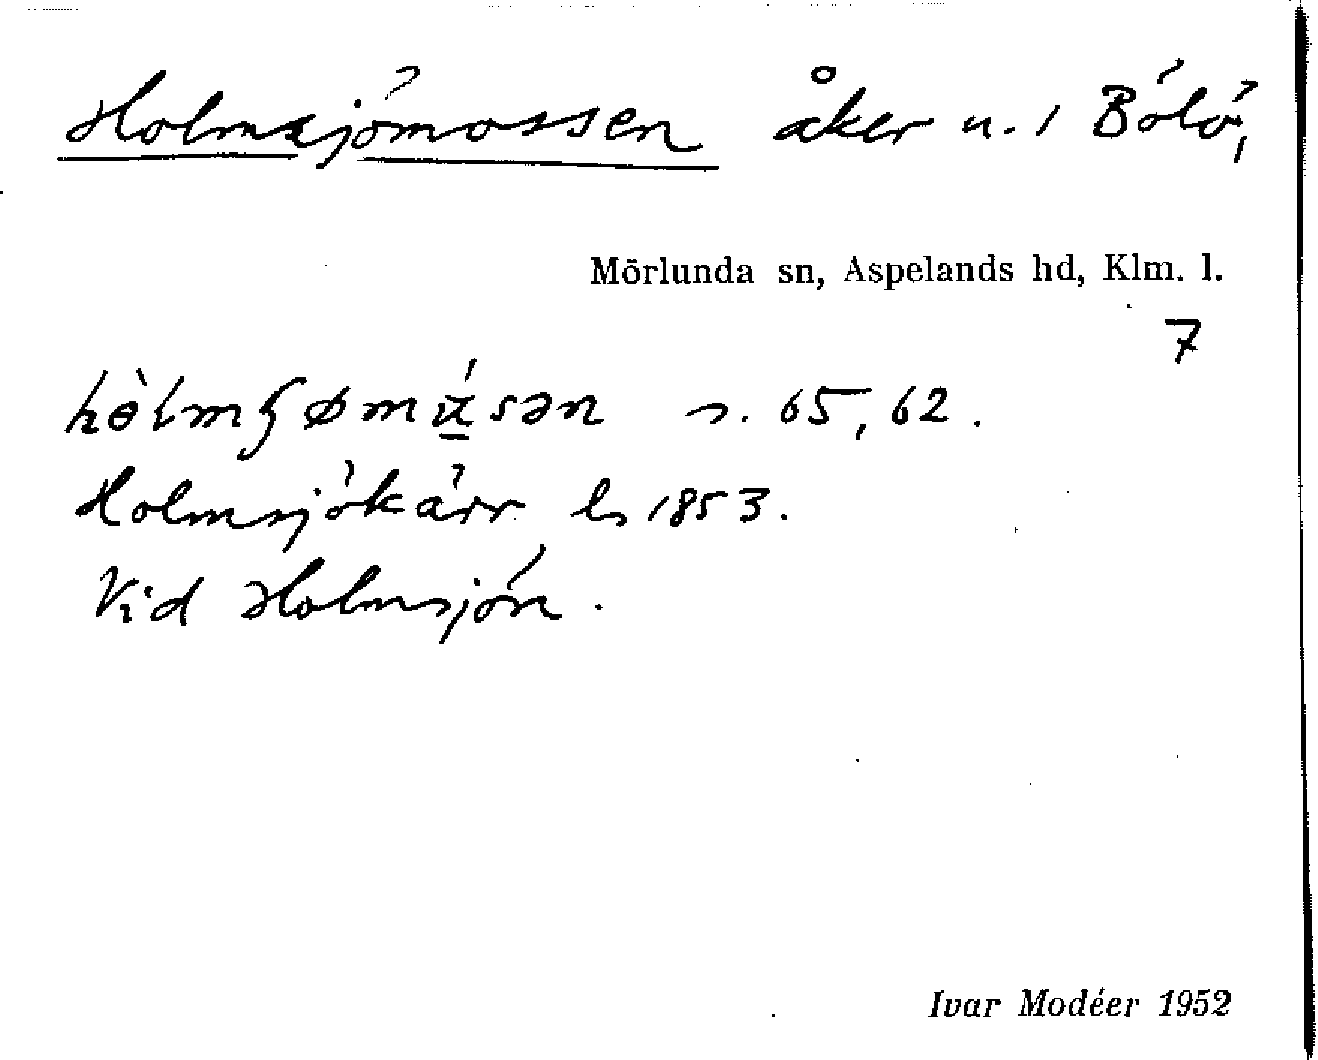 Holmsjömossen åker u. 1 Bölö,
Mörlunda sn, Aspelands hd, Klm. l.
7
s. 65, 62.
Holmsjökärr ls 1853.
Vid Holmsjön.
Ivar Modéer 1952